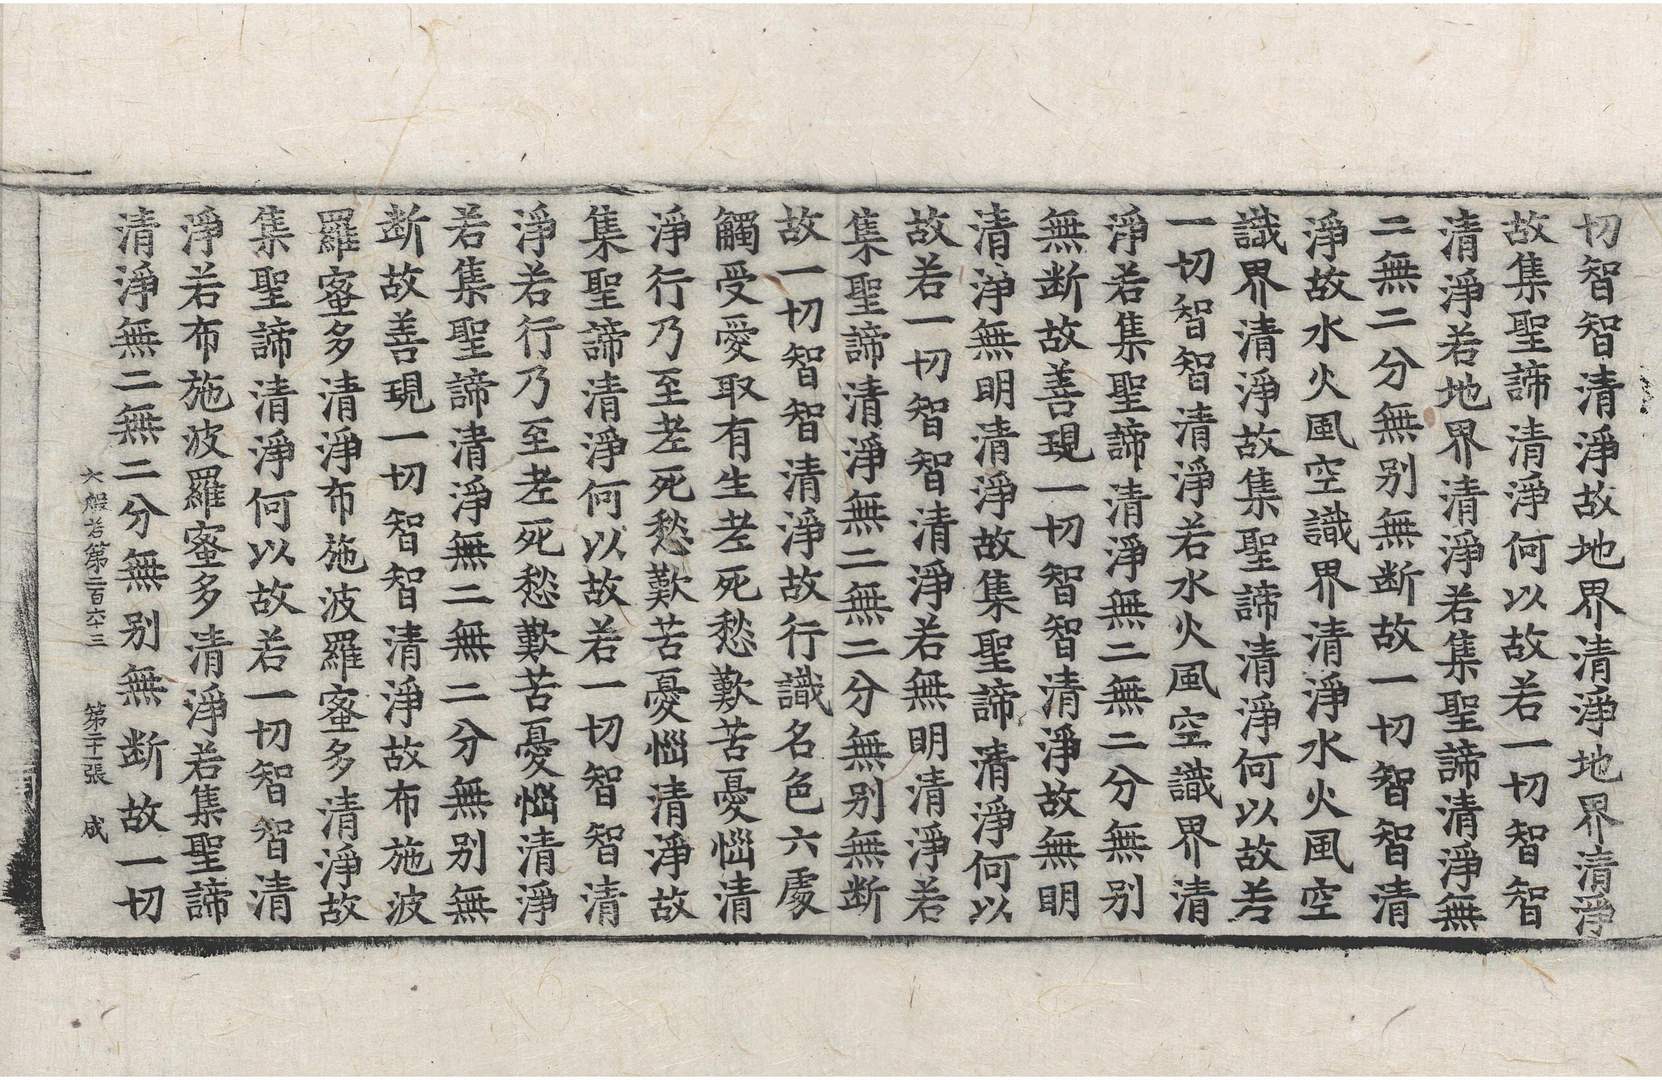 切智智清淨故地界清淨地界清淨
故集聖諦清淨何以故若一切智智
清淨若地界清淨若集聖諦清淨無
二無二分無别無断故一切智智清
淨故水火風空識界清淨水火風空
識界清淨故集聖諦清淨何以故若
一切智智清淨若水火風空識界清
淨若集聖諦清淨無二無二分無别
無断故善現一切智智清淨故無明
清淨無明清淨故集聖諦清淨何以
故若一切智智清淨若無明清淨若
集聖諦清淨無二無二分無别無断
故一切智智清淨故行識名色六處
觸受愛取有生老死愁歎苦憂惱清
淨行乃至老死愁歎苦憂惱清淨故
集聖諦清淨何以故若一切智智清
淨若行乃至老死愁歎苦憂惱清淨
若集聖諦清淨無二無二分無别無
断故善現一切智智清淨故布施波
羅蜜多清淨布施波羅蜜多清淨故
集聖諦清淨何以故若一切智智清
淨若布施波羅蜜多清淨若集聖諦
清淨無二無二分無别無断故一切
大般若第二百六三 第二十一張 成